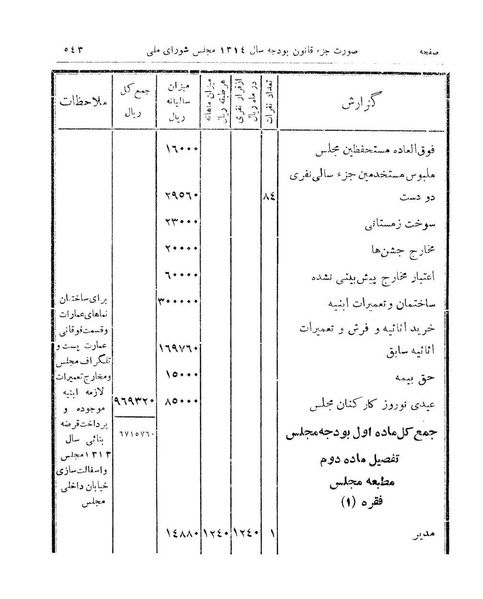 صفحه صورت جزء قانون بودجه سال ۱۳۱٤ مجلس شورای ملی ۵٤۳
گزارش
تعداد نفرات
از قرار نفری در ماه ریال
میزان ماهانه هر طبقه ریال
میزان سالیانه ریال
جمع کل ریال
ملاحظات
فوق العاده مستحفظین مجلس ۱۶۰۰۰
ملبوس مستخدمین جزء سالی نفری
دو دست ۸٤ ۲۹۵۶۰
سوخت زمستانی ۲۳۰۰۰
مخارج جشن‌ها ۲۰۰۰۰
اعتبار مخارج پیش بینی نشده ۶۰۰۰۰
ساختمان و تعمیرات ابنیه ۳۰۰۰۰۰
خرید اثاثیه و فرش و تعمیرات
اثاثیه سابق ۱۶۹۷۶۰
حق بیمه ۱۵۰۰۰
عیدی نوروز کارکنان مجلس ۸۵۰۰۰ ۹۶۹۳۲۰
جمع کل ماده اول بودجه مجلس ۶۷۱۵۷۶۰
برای ساختمان
نماهای عمارات
وقسمت فوقانی
عمارت پست و
تلگراف مجلس
ومخارج تعمیرات
لازمه ابنیه
موجوده و
پرداخت قرضه
بنائی سال
۱۳۱۳ مجلس
واسفالت سازی
خیابان داخلی
مجلس
تفصیل ماده دوم
مطبعه مجلس
فقره (۱)
مدیر ۱ ۱۲٤۰ ۱۲٤۰ ۱٤۸۸۰